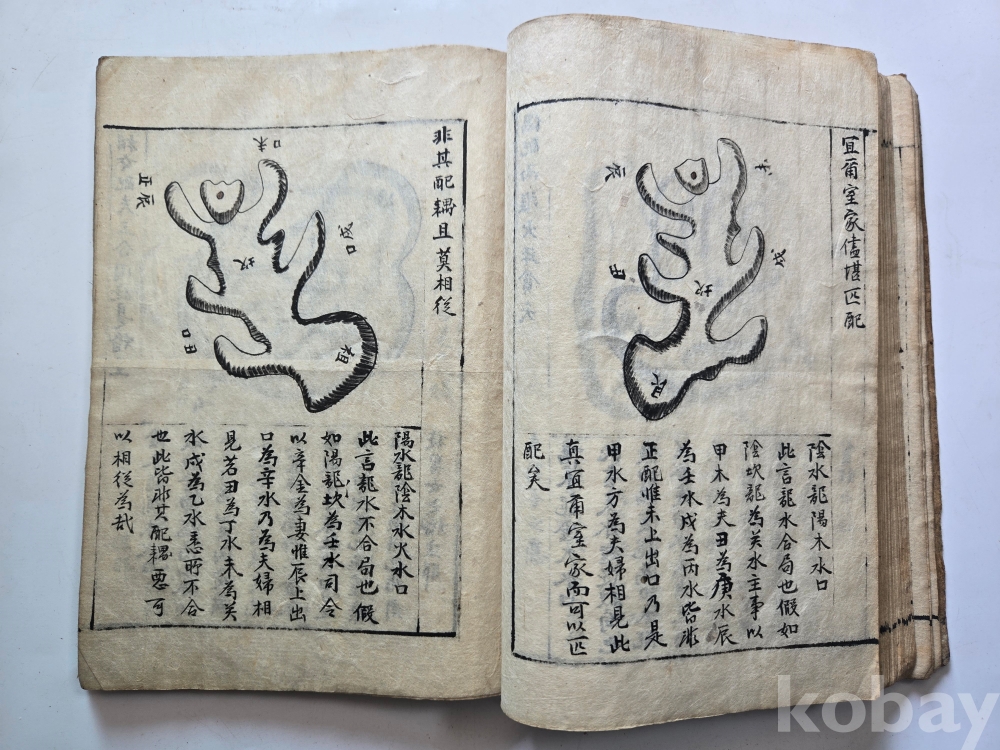 宜爾室家儘堪匹配
未
辰
戌
丑
坎
艮
陰水龍陽木水口
此言龍水合局也假如
陰坎龍為癸水主事以
甲木為夫丑為庚水辰
為壬水戌為丙水皆非
正配惟未上出口乃是
甲水方為夫婦相見此
真宜爾室家而可以匹
配矣
非其配耦且莫相從
口未
正辰
戌口
坎
口丑
祖
陽水龍陰木水火水口
此言龍水不合局也假
如陽龍坎為壬水司令
以辛金為妻惟辰上出
口為辛水乃為夫婦相
見若丑為丁水未為癸
水戌為乙水悉所不合
也此皆非其配耦惡可
以相從為哉
kobay